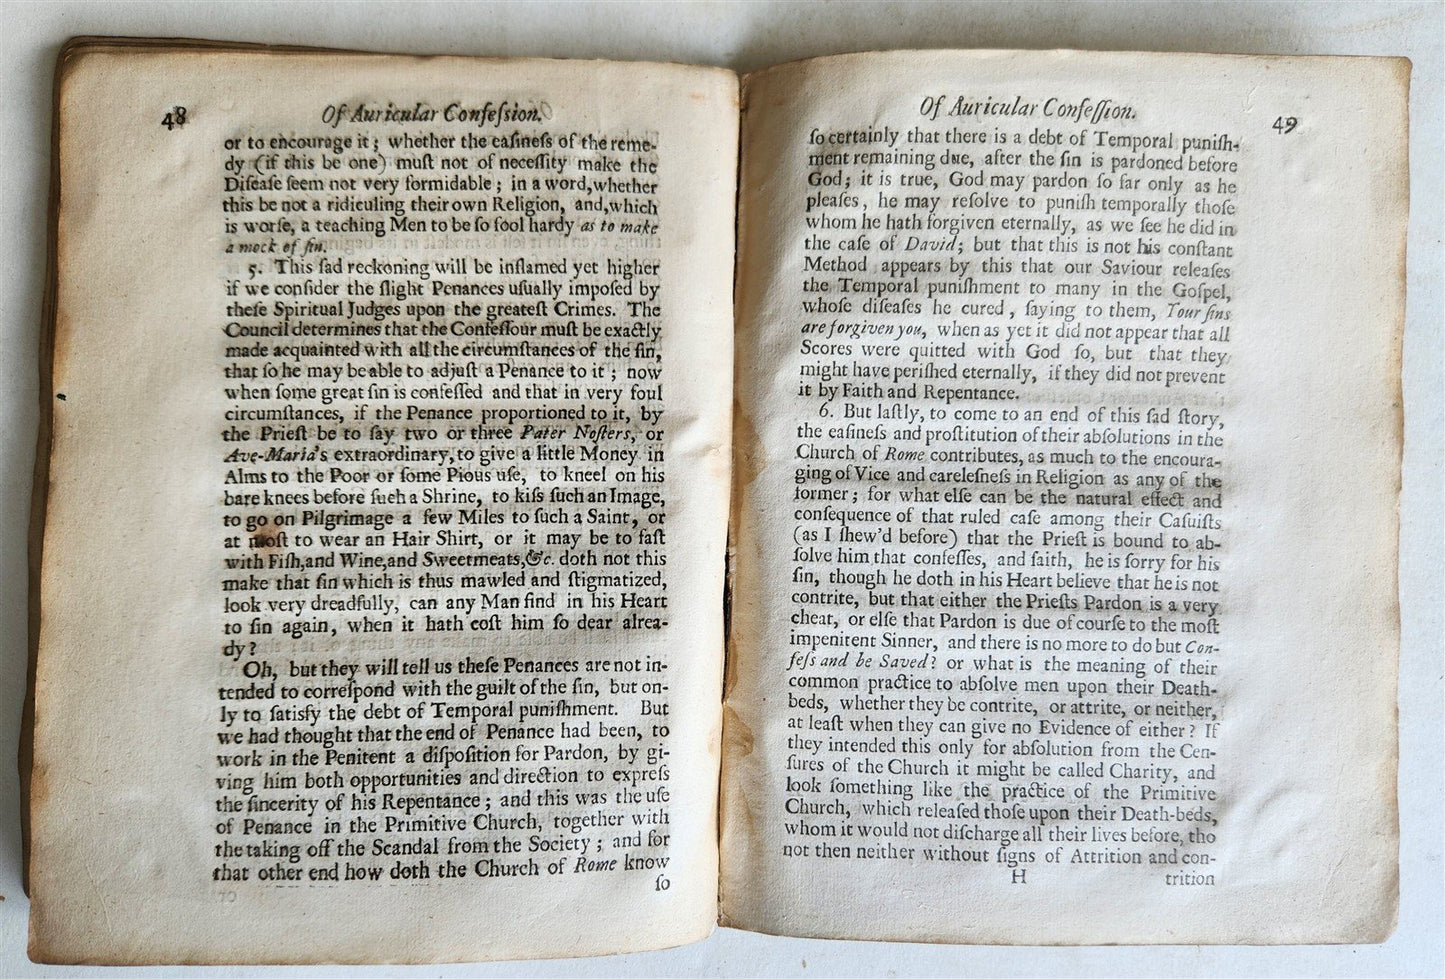 48
Of Auricular Confeſsion.
or to encourage it; whether the eaſineſs of the reme-
dy (if this be one) muſt not of neceſſity make the
Diſeaſe ſeem not very formidable; in a word, whether
this be not a ridiculing their own Religion, and, which
is worſe, a teaching Men to be ſo fool hardy as to make
a mock of ſin.
5. This ſad reckoning will be inflamed yet higher
if we conſider the ſlight Penances uſually impoſed by
theſe Spiritual Judges upon the greateſt Crimes. The
Council determines that the Confeſſour muſt be exactly
made acquainted with all the circumſtances of the ſin,
that ſo he may be able to adjuſt a Penance to it; now
when ſome great ſin is confeſſed and that in very foul
circumſtances, if the Penance proportioned to it, by
the Prieſt be to ſay two or three Pater Noſters, or
Ave-Maria's extraordinary, to give a little Money in
Alms to the Poor or ſome Pious uſe, to kneel on his
bare knees before ſuch a Shrine, to kiſs ſuch an Image,
to go on Pilgrimage a few Miles to ſuch a Saint, or
at moſt to wear an Hair Shirt, or it may be to faſt
with Fiſh, and Wine, and Sweetmeats, &c. doth not this
make that ſin which is thus mawled and ſtigmatized,
look very dreadfully, can any Man find in his Heart
to ſin again, when it hath coſt him ſo dear alrea-
dy?
Oh, but they will tell us theſe Penances are not in-
tended to correſpond with the guilt of the ſin, but on-
ly to ſatisfy the debt of Temporal puniſhment. But
we had thought that the end of Penance had been, to
work in the Penitent a diſpoſition for Pardon, by gi-
ving him both opportunities and direction to expreſs
the ſincerity of his Repentance; and this was the uſe
of Penance in the Primitive Church, together with
the taking off the Scandal from the Society; and for
that other end how doth the Church of Rome know
ſo
Of Auricular Confeſſion.
49
ſo certainly that there is a debt of Temporal puniſh-
ment remaining due, after the ſin is pardoned before
God; it is true, God may pardon ſo far only as he
pleaſes, he may reſolve to puniſh temporally thoſe
whom he hath forgiven eternally, as we ſee he did in
the caſe of David; but that this is not his conſtant
Method appears by this that our Saviour releaſes
the Temporal puniſhment to many in the Goſpel,
whoſe diſeaſes he cured, ſaying to them, Your ſins
are forgiven you, when as yet it did not appear that all
Scores were quitted with God ſo, but that they
might have periſhed eternally, if they did not prevent
it by Faith and Repentance.
6. But laſtly, to come to an end of this ſad ſtory,
the eaſineſs and proſtitution of their abſolutions in the
Church of Rome contributes, as much to the encoura-
ging of Vice and careleſneſs in Religion as any of the
former; for what elſe can be the natural effect and
conſequence of that ruled caſe among their Caſuiſts
(as I ſhew'd before) that the Prieſt is bound to ab-
ſolve him that confeſſes, and ſaith, he is ſorry for his
ſin, though he doth in his Heart believe that he is not
contrite, but that either the Prieſts Pardon is a very
cheat, or elſe that Pardon is due of courſe to the moſt
impenitent Sinner, and there is no more to do but Con-
feſs and be Saved? or what is the meaning of their
common practice to abſolve men upon their Death-
beds, whether they be contrite, or attrite, or neither,
at leaſt when they can give no Evidence of either? If
they intended this only for abſolution from the Cen-
ſures of the Church it might be called Charity, and
look ſomething like the practice of the Primitive
Church, which releaſed thoſe upon their Death-beds,
whom it would not diſcharge all their lives before, tho
not then neither without ſigns of Attrition and con-
H
trition